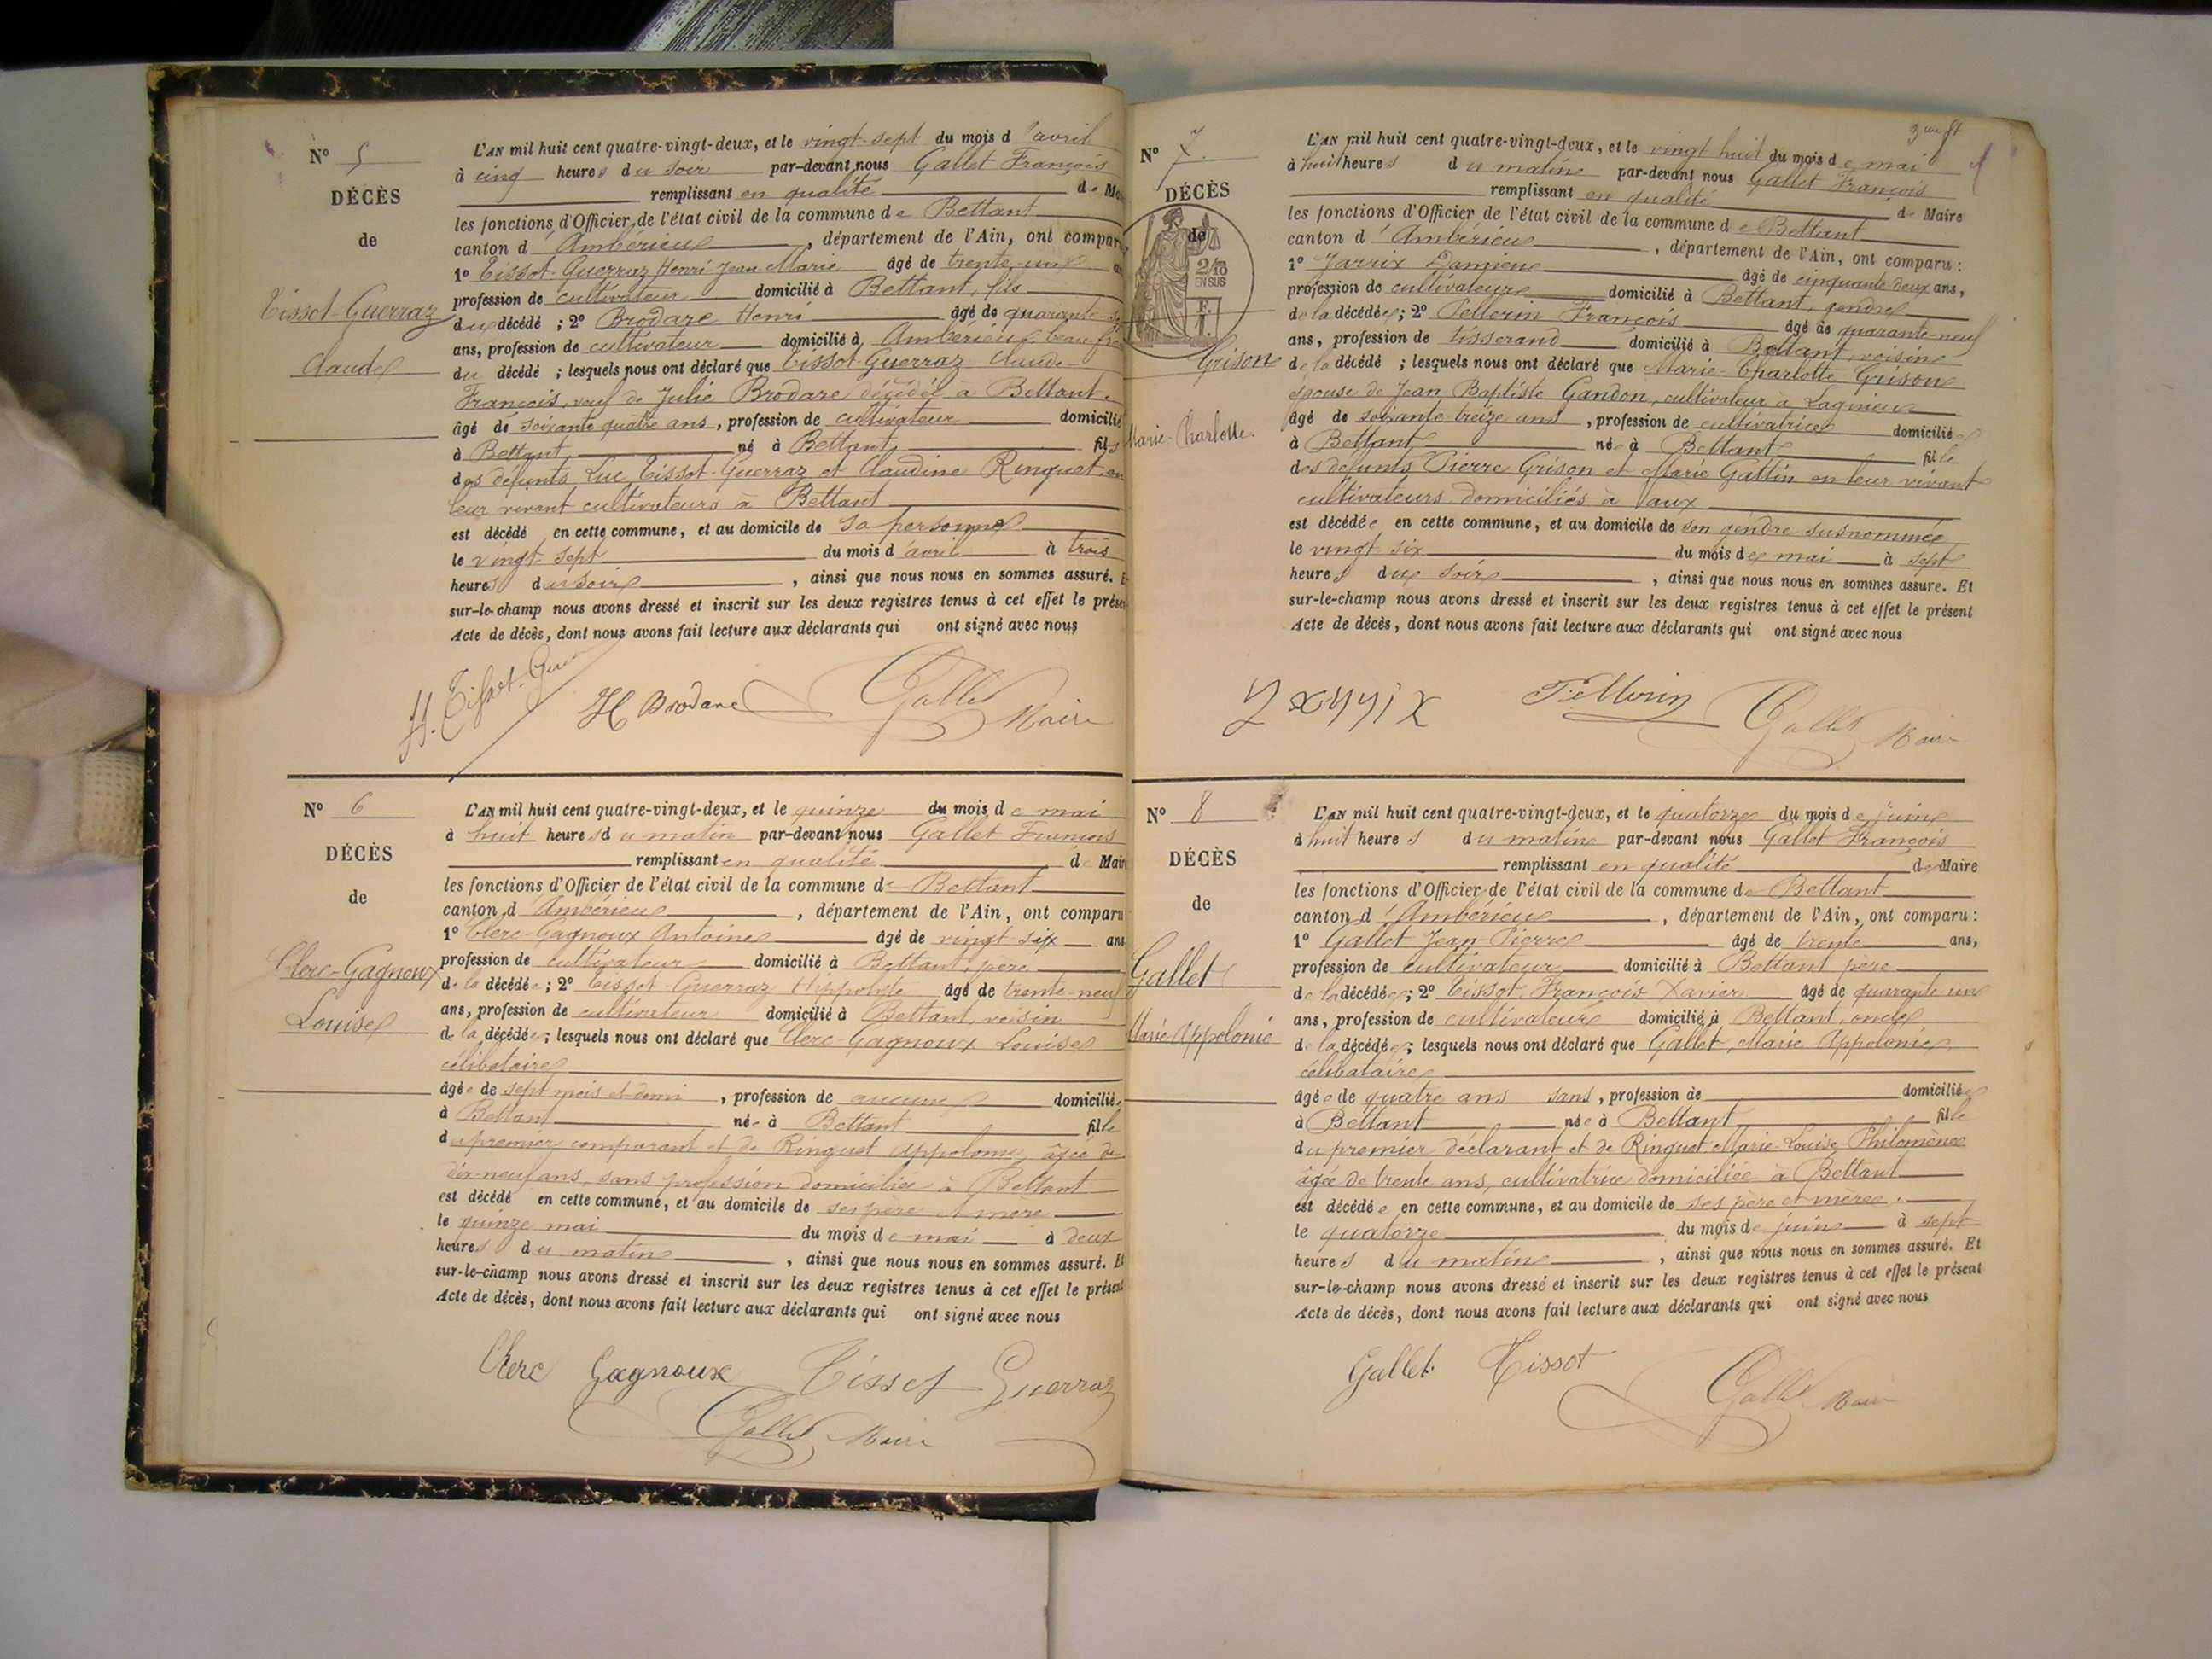 N° 5
DÉCÈS
de
Tissot-Guerraz
Claude
L'AN mil huit cent quatre-vingt-deux, et le vingt-sept du mois d'avril
à cinq heures du soir par-devant nous Gallet François
remplissant en qualité de
les fonctions d'Officier de l'état civil de la commune de Bettant
canton d'Ambérieu, département de l'Ain, ont comparu
1° Tissot-Guerraz Henri Jean Marie âgé de trente-un
profession de cultivateur domicilié à Bettant, fils
du décédé ; 2° Brodare Henri âgé de quarante
ans, profession de cultivateur domicilié à Ambérieu, beau
du décédé ; lesquels nous ont déclaré que Tissot-Guerraz Claude
François, veuf de Julie Brodare décédée à Bettant
âgé de soixante quatre ans, profession de cultivateur domicilié
à Bettant né à Bettant fils
des défunts Luc Tissot-Guerraz et Claudine Ringuet en
leur vivant cultivateurs à Bettant
est décédé en cette commune, et au domicile de sa personne
le vingt-sept du mois d'avril à trois
heures du soir, ainsi que nous nous en sommes assuré. Et
sur-le-champ nous avons dressé et inscrit sur les deux registres tenus à cet effet le présent
Acte de décès, dont nous avons fait lecture aux déclarants qui ont signé avec nous
H. Tissot-Guer
H Brodare Gallet Maire
N° 6
DÉCÈS
de
Clerc-Gagnoux
Louise
L'AN mil huit cent quatre-vingt-deux, et le quinze du mois de mai
à huit heures du matin par-devant nous Gallet François
remplissant en qualité de Maire
les fonctions d'Officier de l'état civil de la commune de Bettant
canton d'Ambérieu, département de l'Ain, ont comparu
1° Clerc-Gagnoux Antoine âgé de vingt six ans
profession de cultivateur domicilié à Bettant, père
de la décédée ; 2° Tissot-Guerraz Hippolyte âgé de trente-neuf
ans, profession de cultivateur domicilié à Bettant, voisin
de la décédée ; lesquels nous ont déclaré que Clerc-Gagnoux Louise
célibataire
âgée de sept mois et demi, profession de aucune domiciliée
à Bettant née à Bettant fille
du premier comparant et de Ringuet Appolonie, âgée de
dix-neuf ans, sans profession domiciliée à Bettant
est décédé en cette commune, et au domicile de ses père et mère
le quinze mai du mois de mai à deux
heures du matin, ainsi que nous nous en sommes assuré. Et
sur-le-champ nous avons dressé et inscrit sur les deux registres tenus à cet effet le présent
Acte de décès, dont nous avons fait lecture aux déclarants qui ont signé avec nous
Clerc Gagnoux Tissot Guerraz
Gallet Maire
N° 7
DÉCÈS
de
2/10
EN SUS
Grison
Marie-Charlotte.
L'AN mil huit cent quatre-vingt-deux, et le vingt huit du mois de mai
à huit heures du matin par-devant nous Gallet François
remplissant en qualité de Maire
les fonctions d'Officier de l'état civil de la commune de Bettant
canton d'Ambérieu, département de l'Ain, ont comparu :
1° Jarrix Damien âgé de cinquante deux ans,
profession de cultivateur domicilié à Bettant, gendre
de la décédée ; 2° Pellerin François âgé de quarante-neuf
ans, profession de tisserand domicilié à Bettant, voisin
de la décédé ; lesquels nous ont déclaré que Marie-Charlotte Grison
épouse de Jean Baptiste Gandon, cultivateur à Lagnieu
âgé de soixante treize ans, profession de cultivatrice domiciliée
à Bettant née à Bettant fille
des défunts Pierre Grison et Marie Gattin en leur vivant
cultivateurs domiciliés à Vaux
est décédée en cette commune, et au domicile de son gendre susnommée
le vingt-six du mois de mai à sept
heures du soir, ainsi que nous nous en sommes assuré. Et
sur-le-champ nous avons dressé et inscrit sur les deux registres tenus à cet effet le présent
Acte de décès, dont nous avons fait lecture aux déclarants qui ont signé avec nous
Gallet Maire
N° 8
DÉCÈS
de
Gallet
Marie-Appolonie
L'AN mil huit cent quatre-vingt-deux, et le quatorze du mois de juin
à huit heures du matin par-devant nous Gallet François
remplissant en qualité de Maire
les fonctions d'Officier de l'état civil de la commune de Bettant
canton d'Ambérieu, département de l'Ain, ont comparu :
1° Gallet Jean-Pierre âgé de trente ans,
profession de cultivateur domicilié à Bettant père
de la décédée ; 2° Tissot François Xavier âgé de quarante-un
ans, profession de cultivateur domicilié à Bettant, oncle
de la décédée ; lesquels nous ont déclaré que Gallet Marie Appolonie
célibataire
âgée de quatre ans sans, profession de domiciliée
à Bettant née à Bettant fille
du premier déclarant et de Ringuet Marie-Louise-Philomène
âgée de trente ans, cultivatrice domiciliée à Bettant
est décédée en cette commune, et au domicile de ses père et mère
le quatorze du mois de juin à sept
heures du matin, ainsi que nous nous en sommes assuré. Et
sur-le-champ nous avons dressé et inscrit sur les deux registres tenus à cet effet le présent
Acte de décès, dont nous avons fait lecture aux déclarants qui ont signé avec nous
Gallet Tissot
Gallet Maire